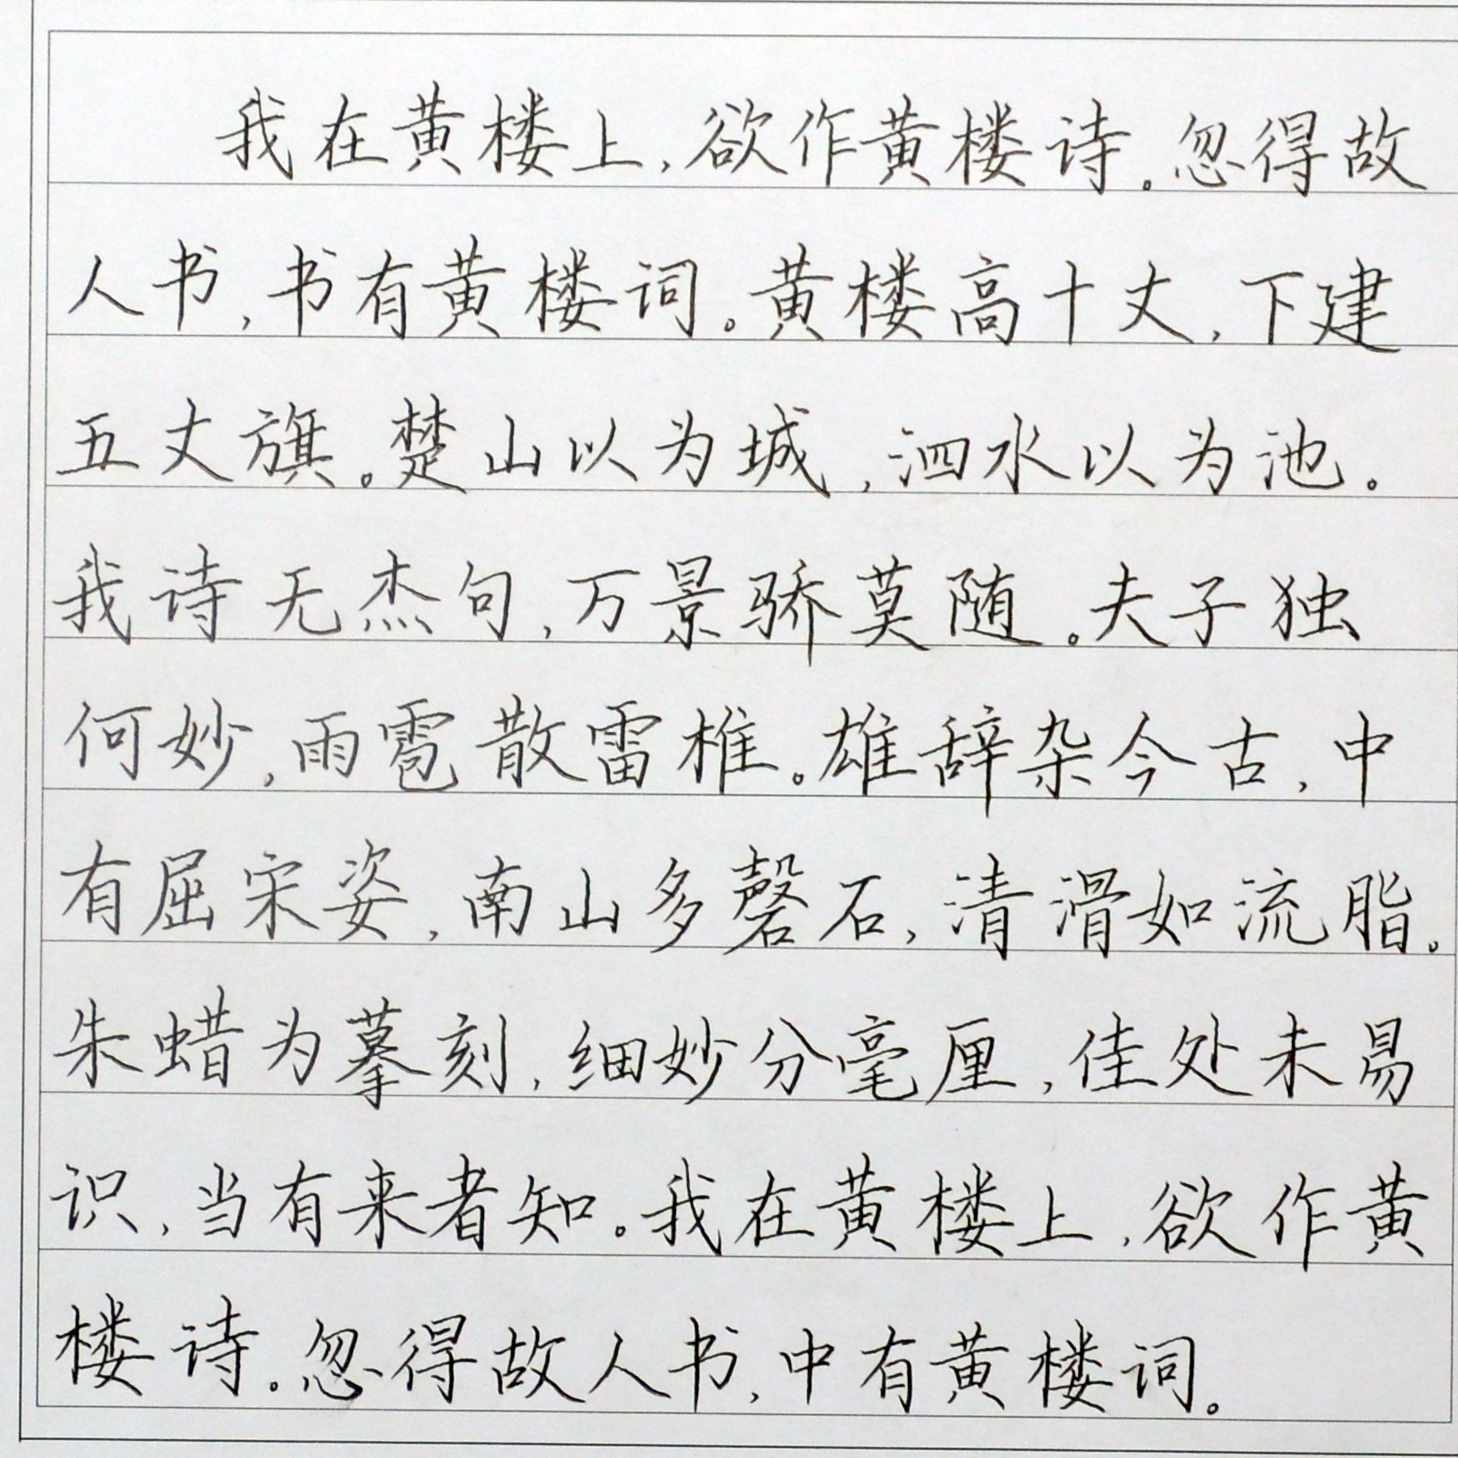 我在黄楼上,欲作黄楼诗。忽得故
人书,书有黄楼词。黄楼高十丈,下建
五丈旗。楚山以为城,泗水以为池。
我诗无杰句,万景骄莫随。夫子独
何妙,雨雹散雷椎。雄辞杂今古,中
有屈宋姿,南山多磬石,清滑如流脂。
朱蜡为摹刻,细妙分毫厘,佳处未易
识,当有来者知。我在黄楼上,欲作黄
楼诗。忽得故人书,中有黄楼词。